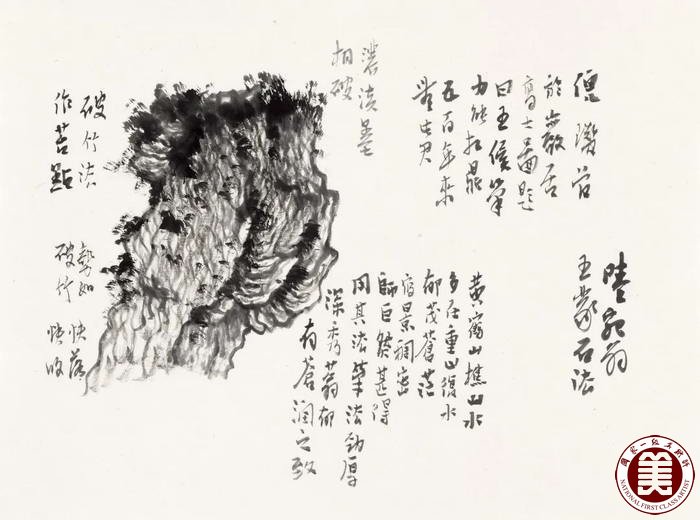 陸宛翁
王蒙石法
倪瓚嘗
於巖居
高士圖題
曰王侯筆
力能扛鼎
五百年來
無此君
黃鶴山樵山水
多在重山復水
郁茂蒼茫
寫景稠密
師巨然甚得
用其法筆法勁厚
深秀蓊郁
有蒼潤之致
濃淡墨
相破
破竹法
作苔點
勢如
破竹
快落
快收
國家一級美術師
美
NATIONAL FIRST CLASS ARTIST